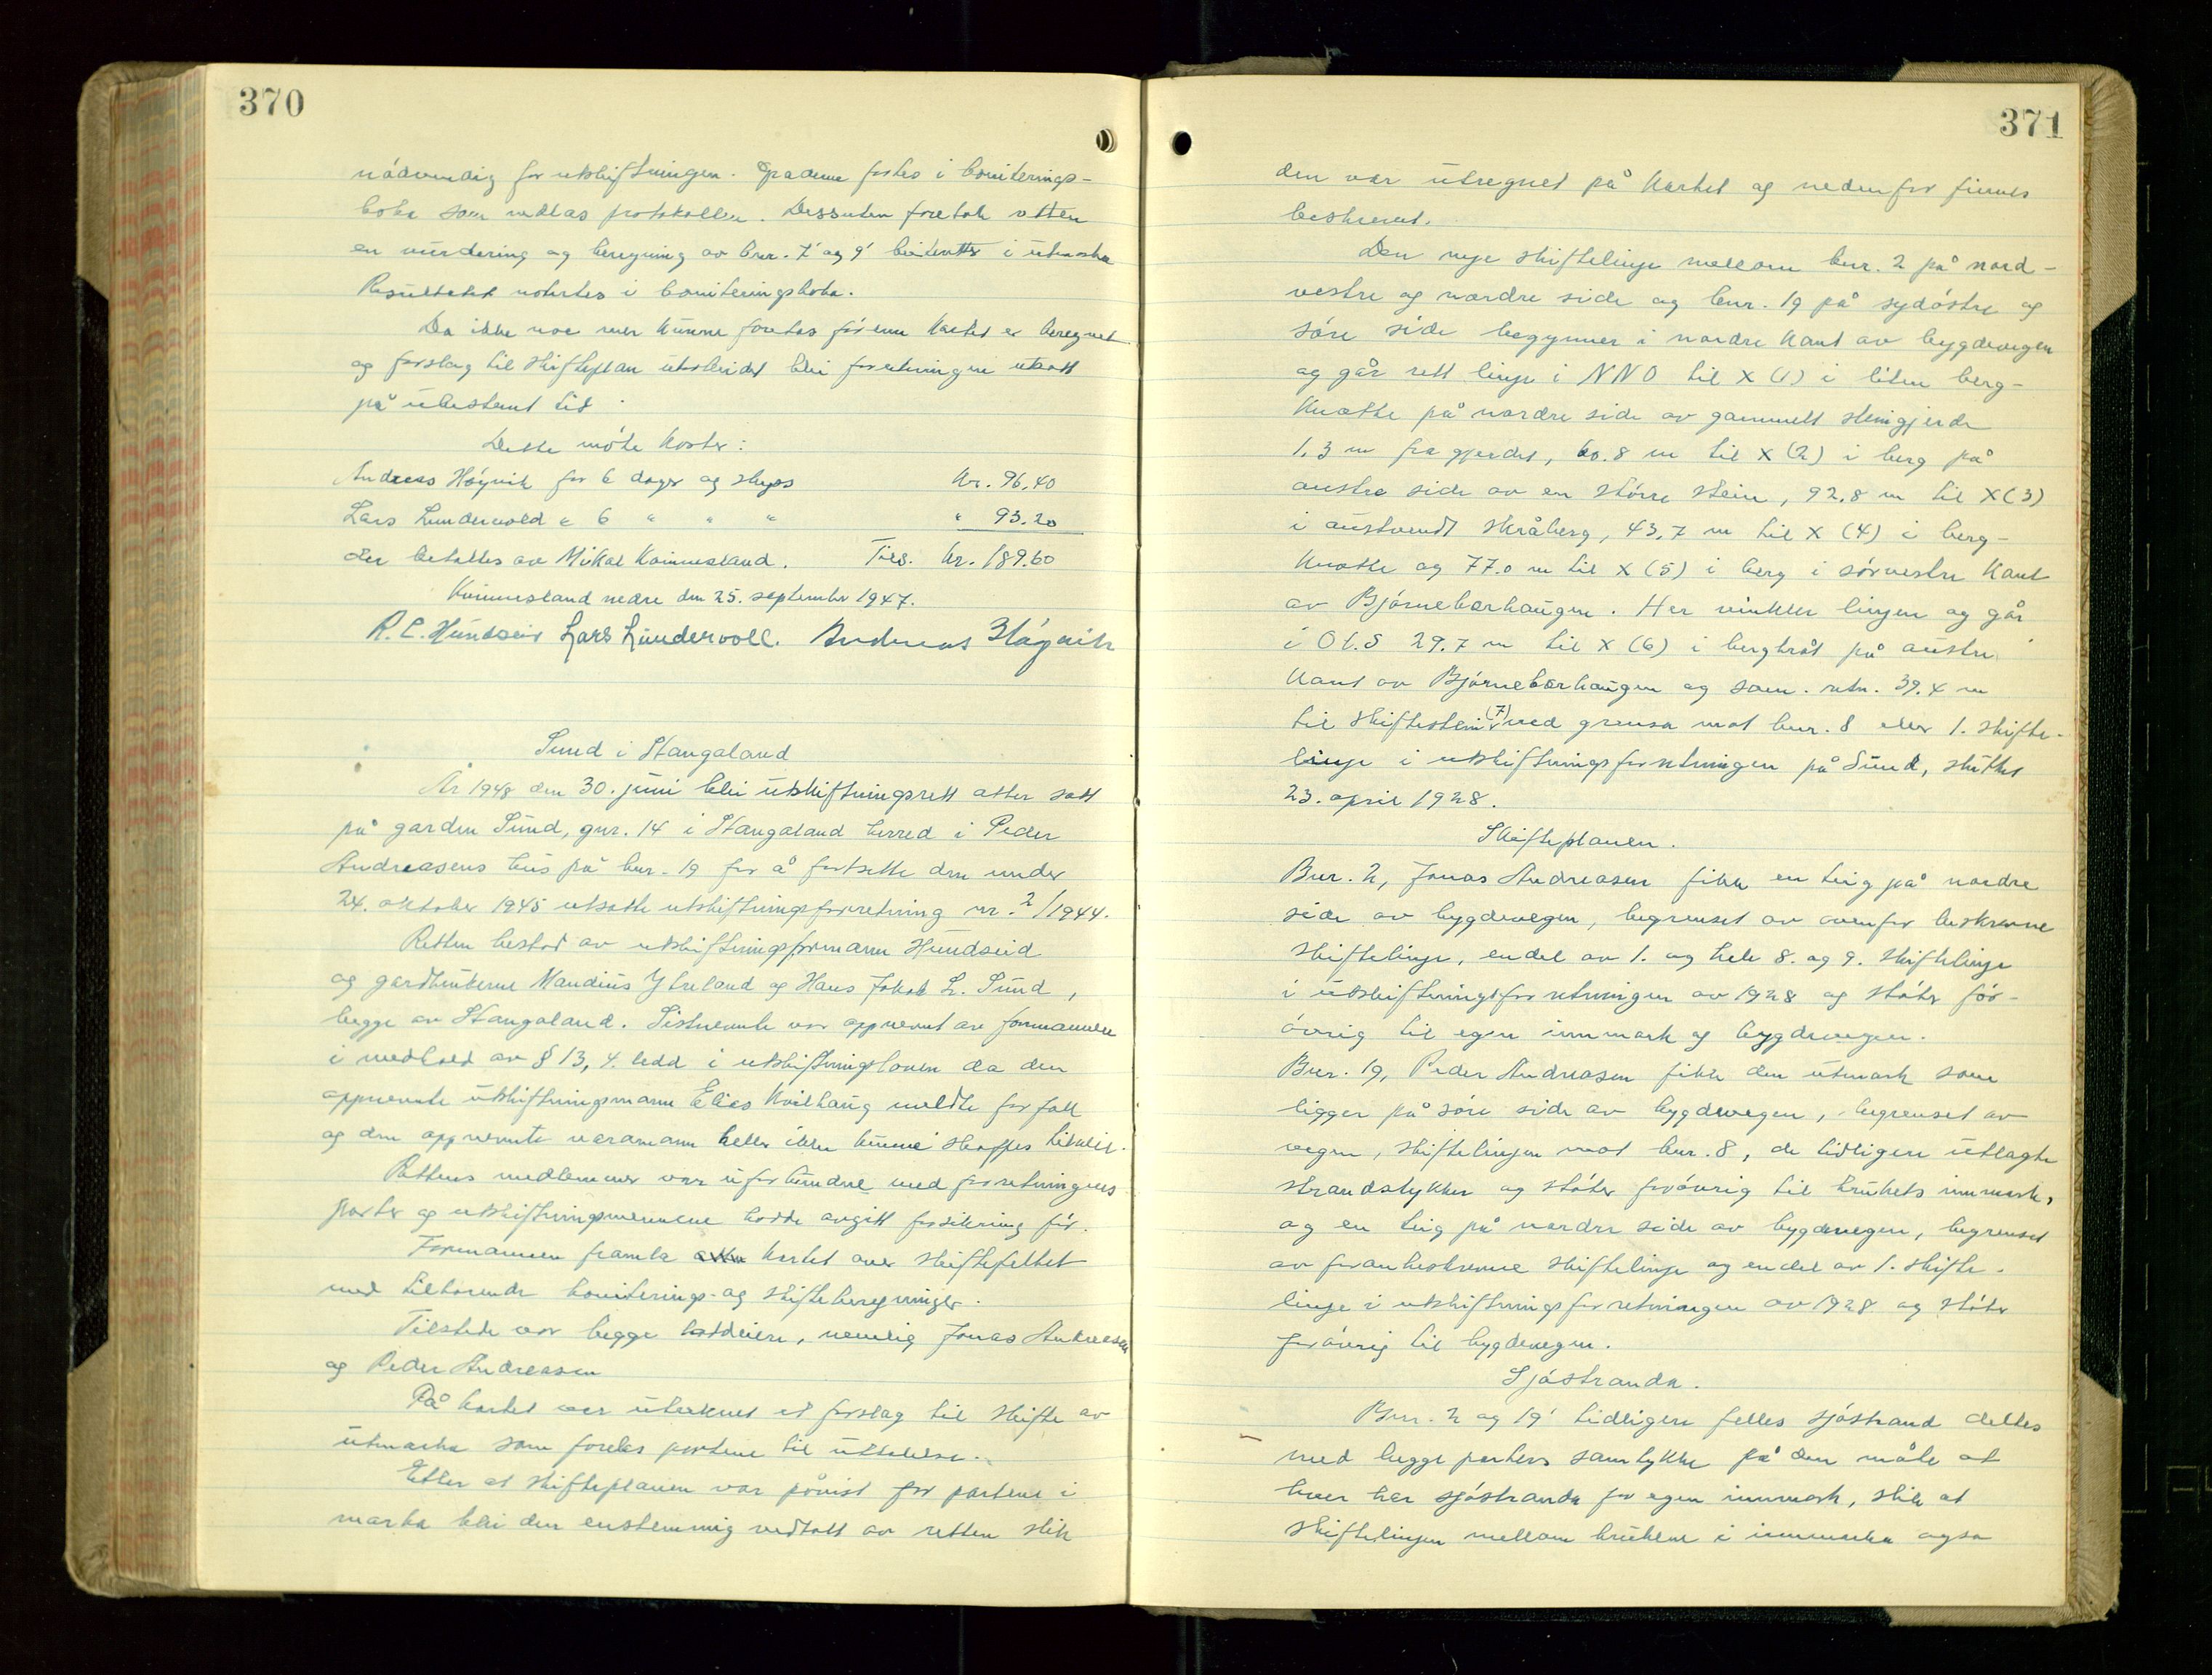 370
nødvendig for utskiftningen. Gradene førtes i boniterings-
boka som vedlas protokollen. Dessuten foretok retten
en vurdering og beregning av bnr. 7 og 9' beiterett i utmarka
Resultatet notertes i boniteringsboka.
Da ikke noe mer kunne foretas før enn kartet er beregnet
og forslag til skifteplan utarbeidet blei forretningen utsatt
på ubestemt tid.
Dette møte koster:
Andreas Høynik for 6 dager og skyss kr. 96,40
Lars Lundervold " 6 " " " " 93.20
der betaltes av Mikal Kvinnesland. Tils. kr. 189.60
Kvinnesland nedre den 25. september 1947.
R. C. Hundseid Lars Lundervoll. Andreas Høynik
Sund i Stangaland
År 1948 den 30. juni blei utskiftningsrett atter satt
på garden Sund, gnr. 14 i Stangaland herred i Peder
Andreasens hus på bnr. 19 for å fortsette den under
24. oktober 1945 utsatte utskiftningsforretning nr. 2/1944.
Retten bestod av utskiftningsformann Hundseid
og gardbrukerne Maudius Ytreland og Hans Jakob L. Sund,
begge av Stangaland. Sistnevnte var oppnevnt av formannen
i medhold av § 13, 4. ledd i utskiftningsloven da den
oppnevnte utskiftningsmann Elias Kvilhaug meldte forfall
og den oppnevnte varamann heller ikke kunne skaffes tilveie.
Rettens medlemmer var uforbundne med forretningens
parter og utskiftningsmennene hadde avgitt forsikring før.
Formannen framla kartet over skiftefeltet
med tilhørende boniterings- og skifteberegninger.
Tilstede var begge loddeiere, nemlig Jonas Andreasen
og Peder Andreasen
På kartet var utarbeidet et forslag til skifte av
utmarka som forelas partene til uttalelse.
Etter at skifteplanen var påvist for partene i
marka blei den enstemmig vedtatt av retten slik
371
den var utregnet på kartet og nedenfor finnes
beskrevet.
Den nye skiftelinje mellom bnr. 2 på nord-
vestre og nordre side og bnr. 19 på sydøstre og
søre side begynner i nordre kant av bygdevegen
og går rett linje i NNO til X (1) i liten berg-
knatte på nordre side av gammelt steingjerde
1,3 m fra gjerdet, 60.8 m til X (2) i berg på
austre side av en større stein, 92,8 m til X (3)
i austvendt skråberg, 43,7 m til X (4) i berg-
knatte og 77.0 m til X (5) i berg i sørvestre kant
av Bjørnebærhaugen. Her vinkler linjen og går
i O t. S 29.7 m til X (6) i bergbrot på austre
kant av Bjørnebærhaugen og sam. retn. 39.4 m
til skiftestein (7) ved grensa mot bnr. 8 eller 1. skifte-
linje i utskiftningsforretningen på Sund, sluttet
23. april 1928.
Skifteplanen.
Bnr. 2, Jonas Andreasen fikk en teig på nordre
side av bygdevegen, begrenset av ovenfor beskrevne
skiftelinje, en del av 1. og hele 8. og 9. skiftelinje
i utskiftningsforretningen av 1928 og støter for-
øvrig til egen innmark og bygdevegen.
Bnr. 19, Peder Andreasen fikk den utmark som
ligger på søre side av bygdevegen, begrenset av
vegen, skiftelinjen mot bnr. 8, de tidligere utlagte
strandstykker og støter forøvrig til brukets innmark,
og en teig på nordre side av bygdevegen, begrenset
av foranbeskrevne skiftelinje og en del av 1. skifte-
linje i utskiftningsforretningen av 1928 og støter
forøvrig til bygdevegen.
Sjøstranda.
Bnr. 2 og 19' tidligere felles sjøstrand deltes
med begge parters samtykke på den måte at
hver har sjøstranda for egen innmark, slik at
skiftelinjen mellom brukene i innmarka også